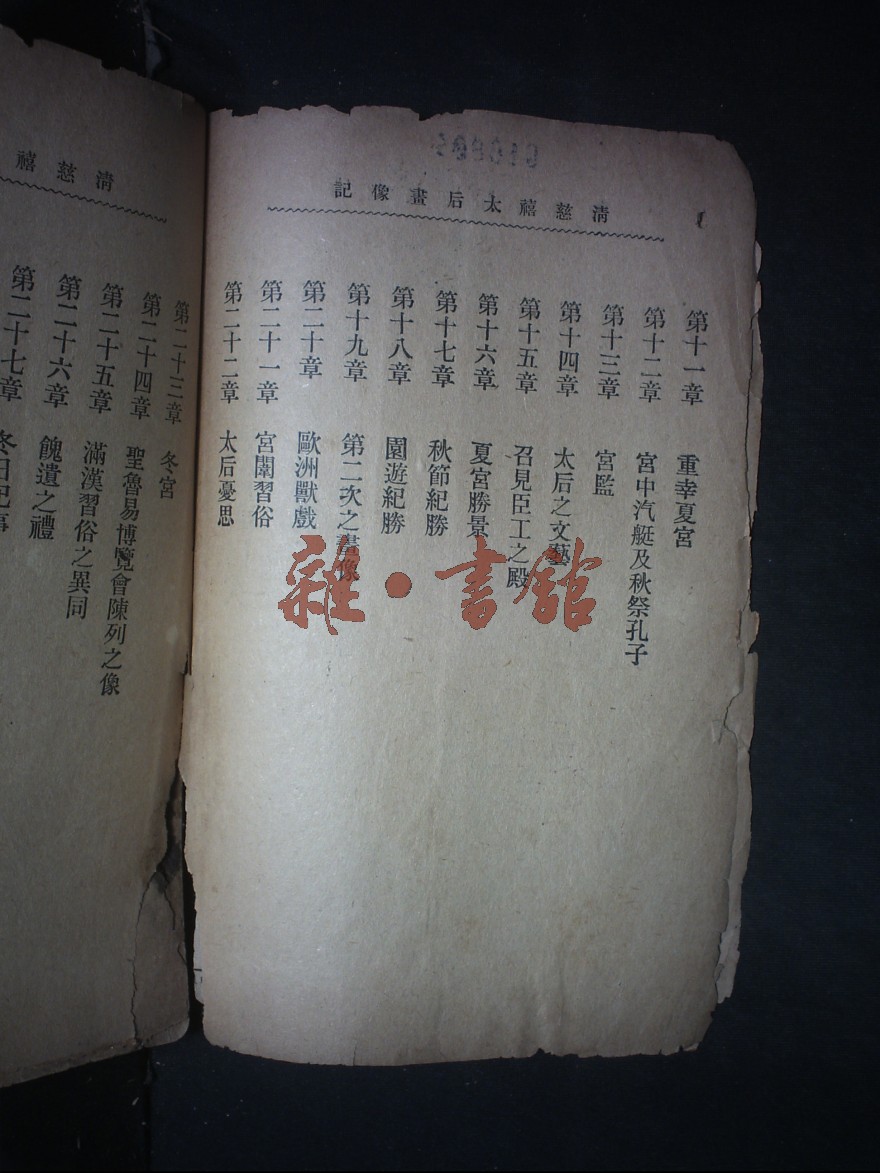 清慈禧太后畫像記
第十一章 重幸夏宮
第十二章 宮中汽艇及秋祭孔子
第十三章 宮監
第十四章 太后之文藝
第十五章 召見臣工之殿
第十六章 夏宮勝景
第十七章 秋節紀勝
第十八章 園遊紀勝
第十九章 第二次之畫像
第二十章 歐洲獸戲
第二十一章 宮闈習俗
第二十二章 太后憂思
清慈禧
第二十三章 冬宮
第二十四章 聖魯易博覽會陳列之像
第二十五章 滿漢習俗之異同
第二十六章 餽遺之禮
第二十七章 冬日記事
雜·書館